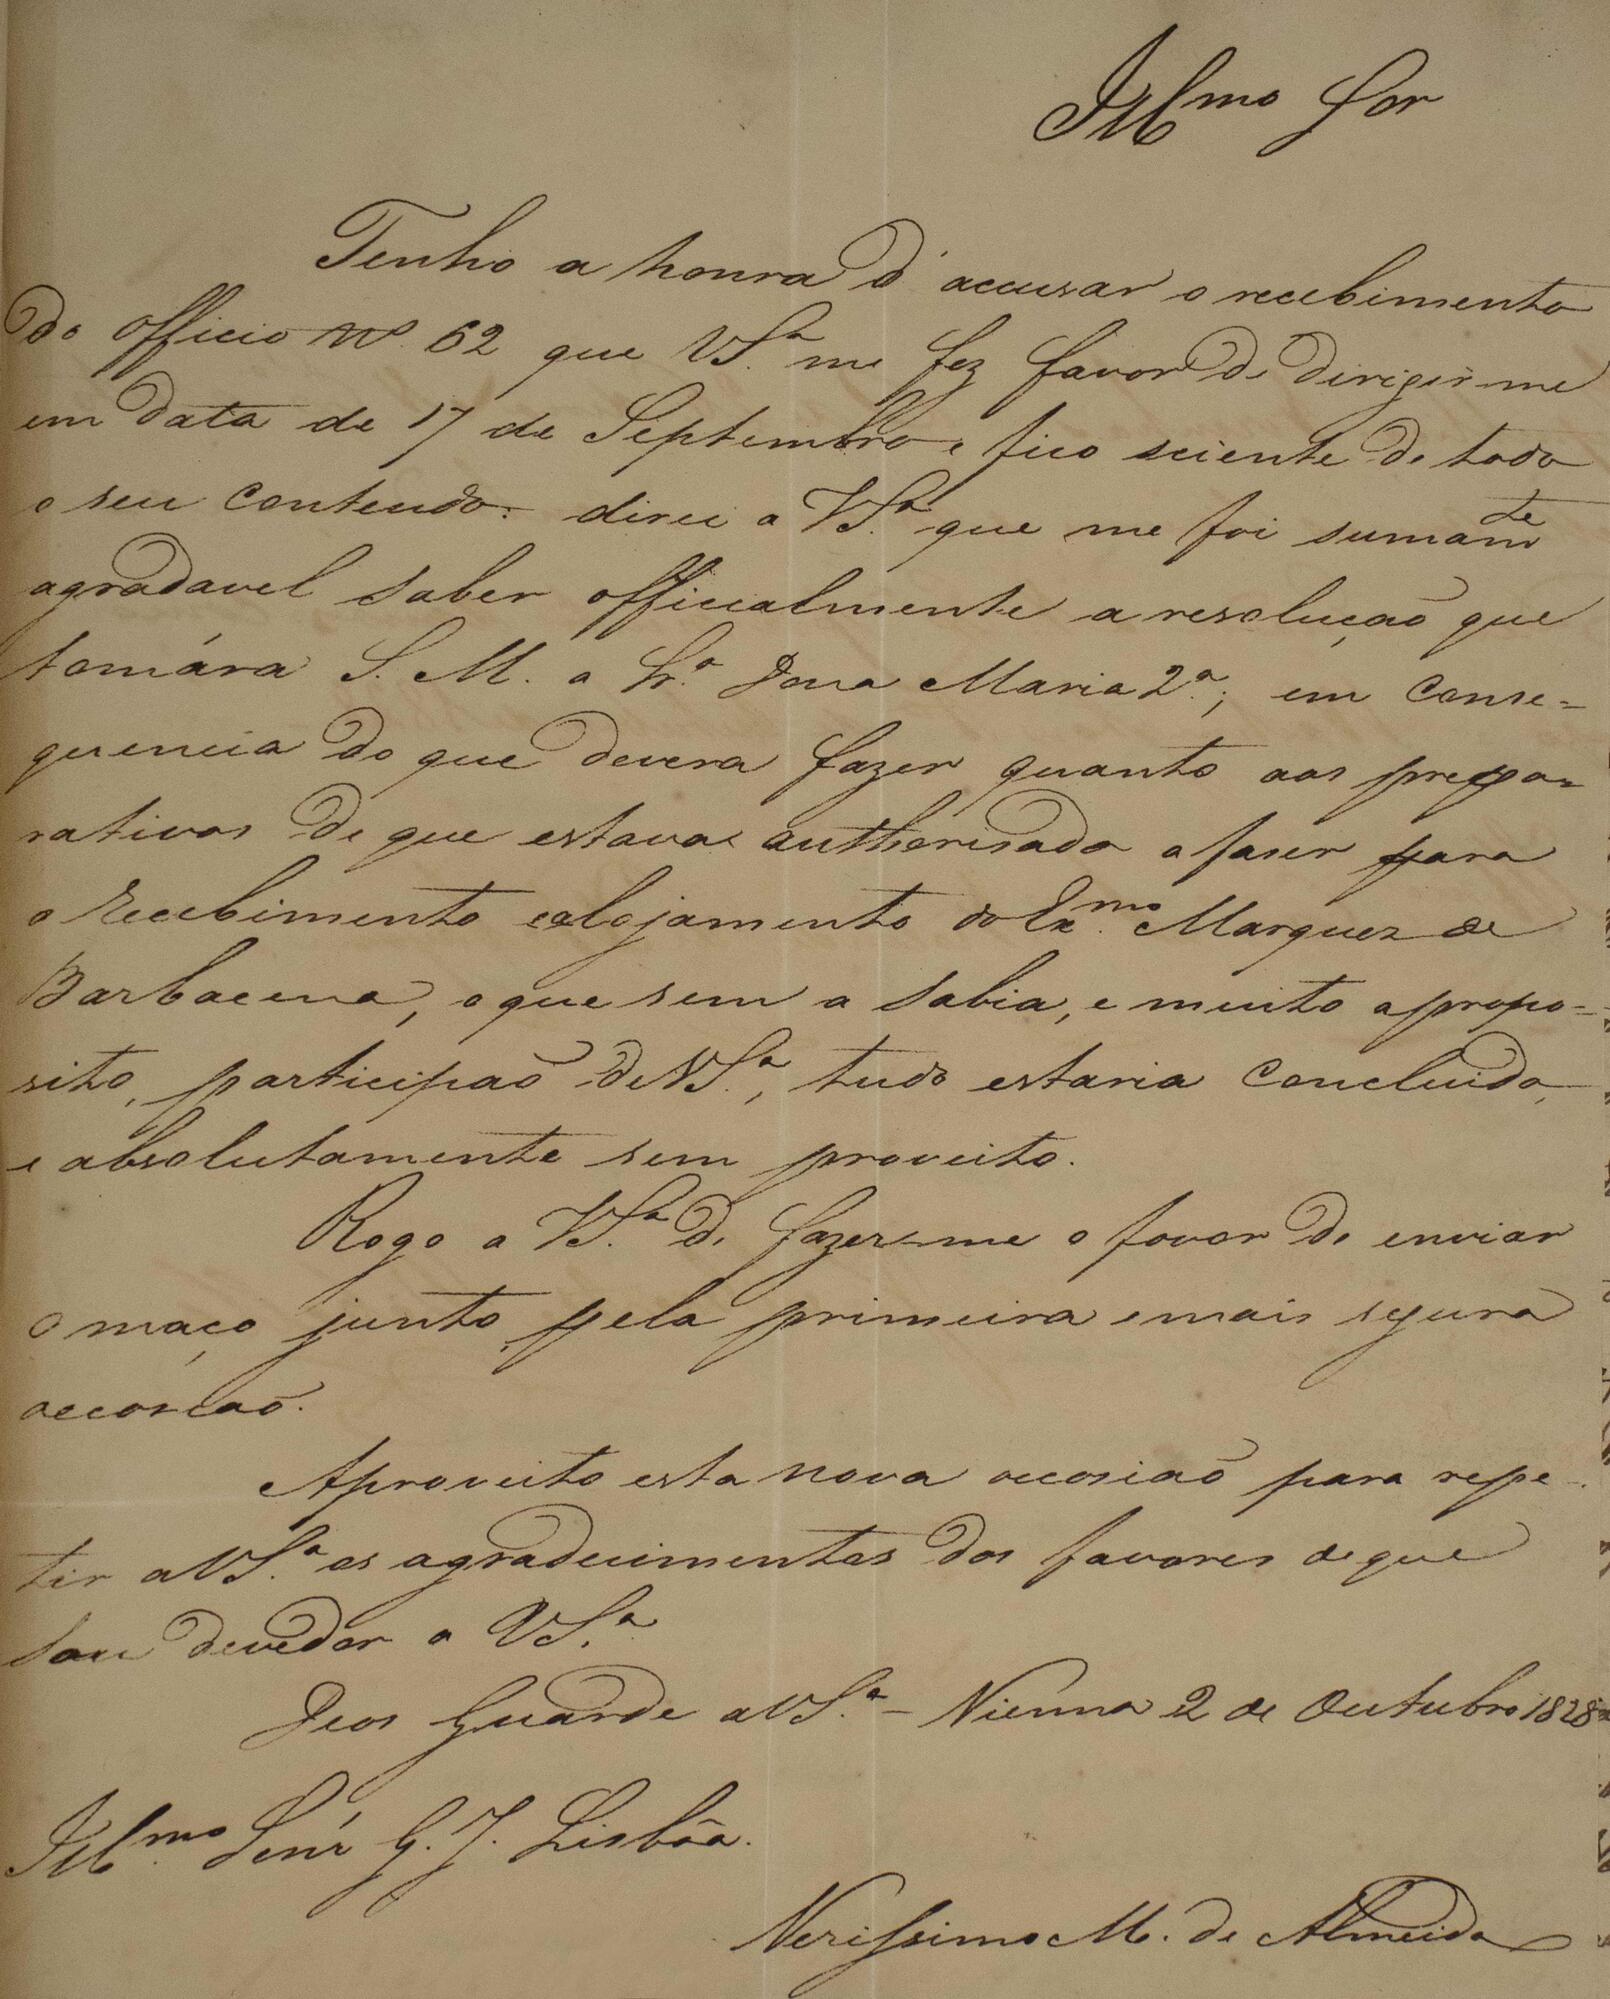 Ill.mo Snr
Tenho a honra d'accusar o recebimento
do officio Nº. 62 que VS.ª me fez favor de dirigir-me
em data de 17 de Septembro e fico sciente de todo
o seu contendo: direi a VS.ª que me foi sumamte
agradavel saber officialmente a resolução que
tomára S. M. a Sr.ª Dona Maria 2ª.; em conse=
quencia do que devera fazer quanto aos prepa=
rativos de que estava authorisado a faser para
o recebimento e alojamento do Ex.mo Marquez de
Barbacena, o que sem a sabia, e muito apropo=
sito, participaõ de VS.ª, tudo estaria concluido,
e absolutamente sem proveito.
Rogo a VS.ª de fazer-me o favor de enviar
o maço junto, pela primeira e mais segura
occosiaõ.
Aproveito esta nova occosiaõ para repe-
tir a VS.ª os agradecimentos dos favores de que
sou devedor a VS.ª
Deos Guarde a VS.ª - Vienna 2 de Outubro 1828
Ill.mo Senr G. J. Lisbôa.
Verissimo M. de Almeida